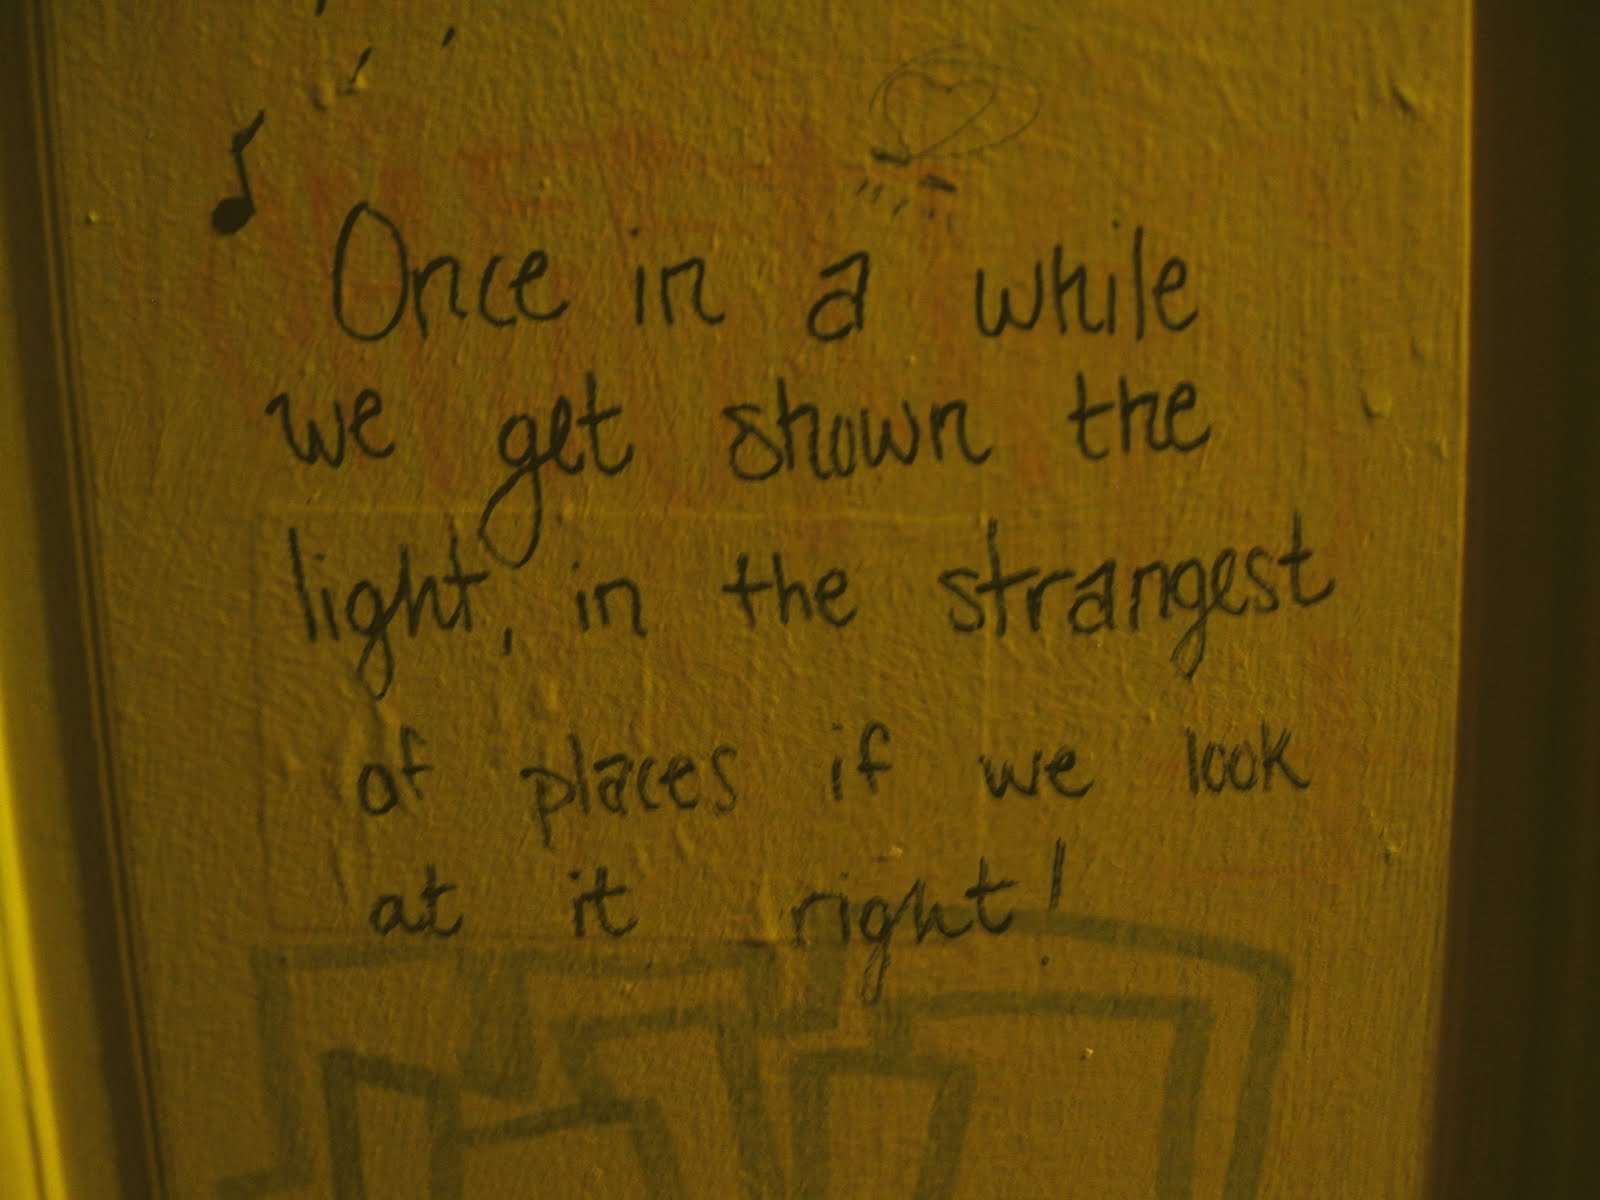 Once in a while
we get shown the
light, in the strangest
of places if we look
at it right!